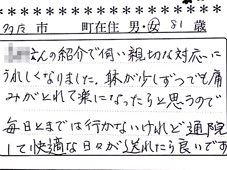 市 町在住 男・女 81 歳
さんの紹介で伺い親切な対応に
うれしくなりました。躰が少しずつでも痛
みがとれて楽になったらと思うので
毎日とまでは行かないけれど通院
して快適な日々が送れたら良いです